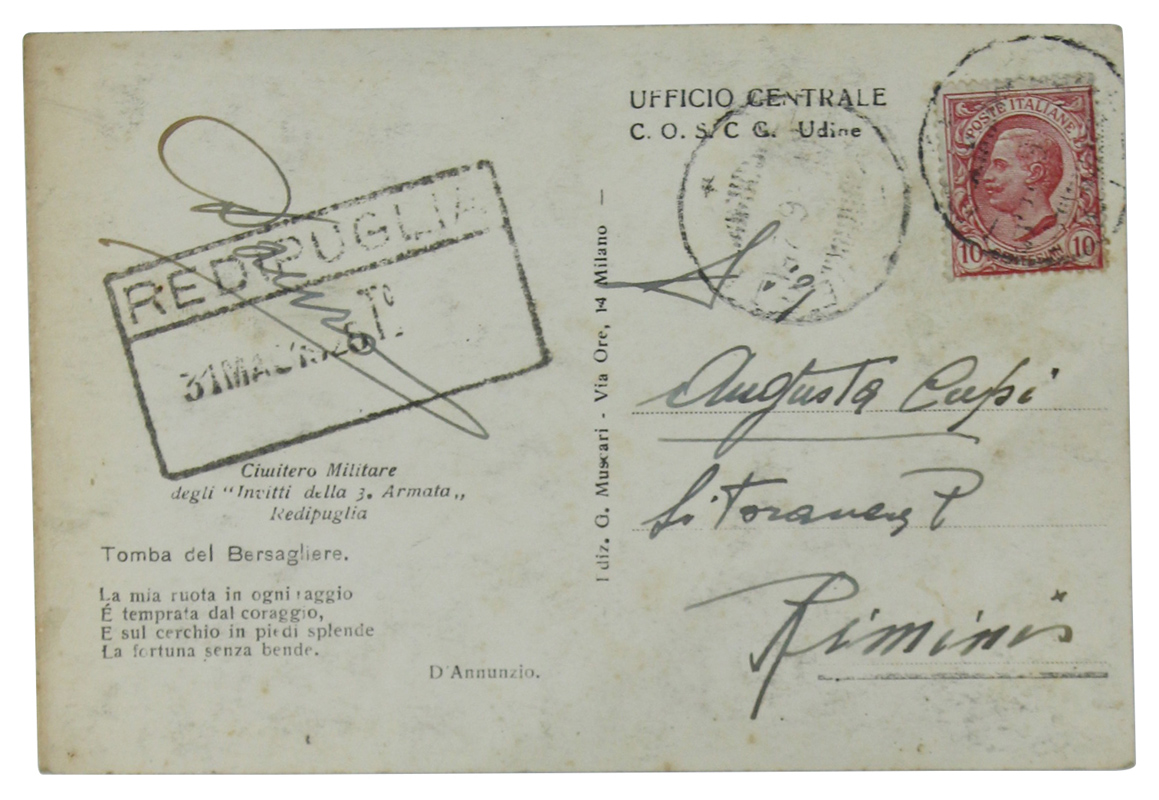 REDIPUGLIA
Cimitero Militare
degli "Invitti della 3. Armata„
Redipuglia
Tomba del Bersagliere.
La mia ruota in ogni raggio
É temprata dal coraggio,
E sul cerchio in piedi splende
La fortuna senza bende.
D'Annunzio.
Ediz. G. Muscari - Via Ore, 14 Milano
UFFICIO CENTRALE
C. O. S. C G. Udine
POSTE ITALIANE
10 10
Augusta
Rimini